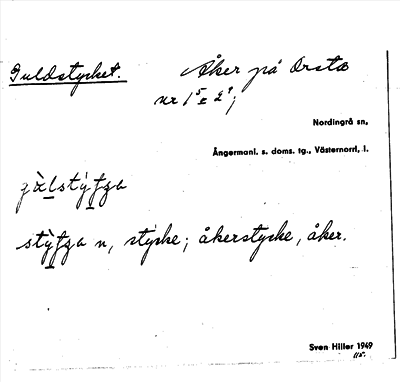 Guldstycket. Åker på Orsta
nr 1 5 & 2 9;
Nordingrå sn,
Ångermanl. s. doms. tg., Västernorrl. l.
stycke; åkerstycke, åker.
Sven Hiller 1949
115.